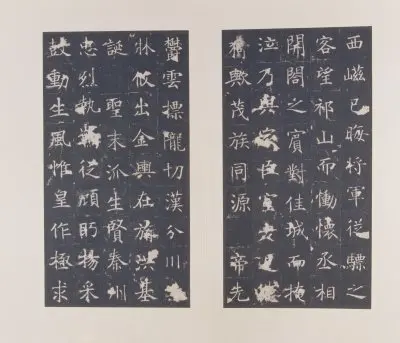 西巘已暌将軍從驃之
客望祁山而慟懷丞相
開閤之賓對佳城而掩
泣乃與家臣
猗歟茂族同源帝先
鬱雲標隴切漢分川
攸出金輿在洪基
誕聖末派生賢秦州
忠烈執從頋眄揚采
鼓動生風惟皇作極求